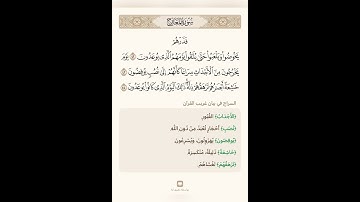 سُورَةُ المَعَارِجِ
فَذَرْهُمْ
يَخُوضُوا۟ وَيَلْعَبُوا۟ حَتَّىٰ يُلَـٰقُوا۟ يَوْمَهُمُ ٱلَّذِى يُوعَدُونَ ٤٢ يَوْمَ
يَخْرُجُونَ مِنَ ٱلْأَجْدَاثِ سِرَاعًا كَأَنَّهُمْ إِلَىٰ نُصُبٍ يُوفِضُونَ ٤٣
خَـٰشِعَةً أَبْصَـٰرُهُمْ تَرْهَقُهُمْ ذِلَّةٌ ذَٰلِكَ ٱلْيَوْمُ ٱلَّذِى كَانُوا۟ يُوعَدُونَ ٤٤
السراج في بيان غريب القرآن
﴿الأَجْدَاثِ﴾ القُبُورِ
﴿نُصُبٍ﴾ أَحْجَارٍ تُعْبَدُ مِنْ دُونِ اللهِ
﴿يُوفِضُونَ﴾ يُهَرْوِلُونَ، وَيُسْرِعُونَ
﴿خَاشِعَةً﴾ ذَلِيلَةً، مُنْكَسِرَةً
﴿تَرْهَقُهُمْ﴾ تَغْشَاهُمْ